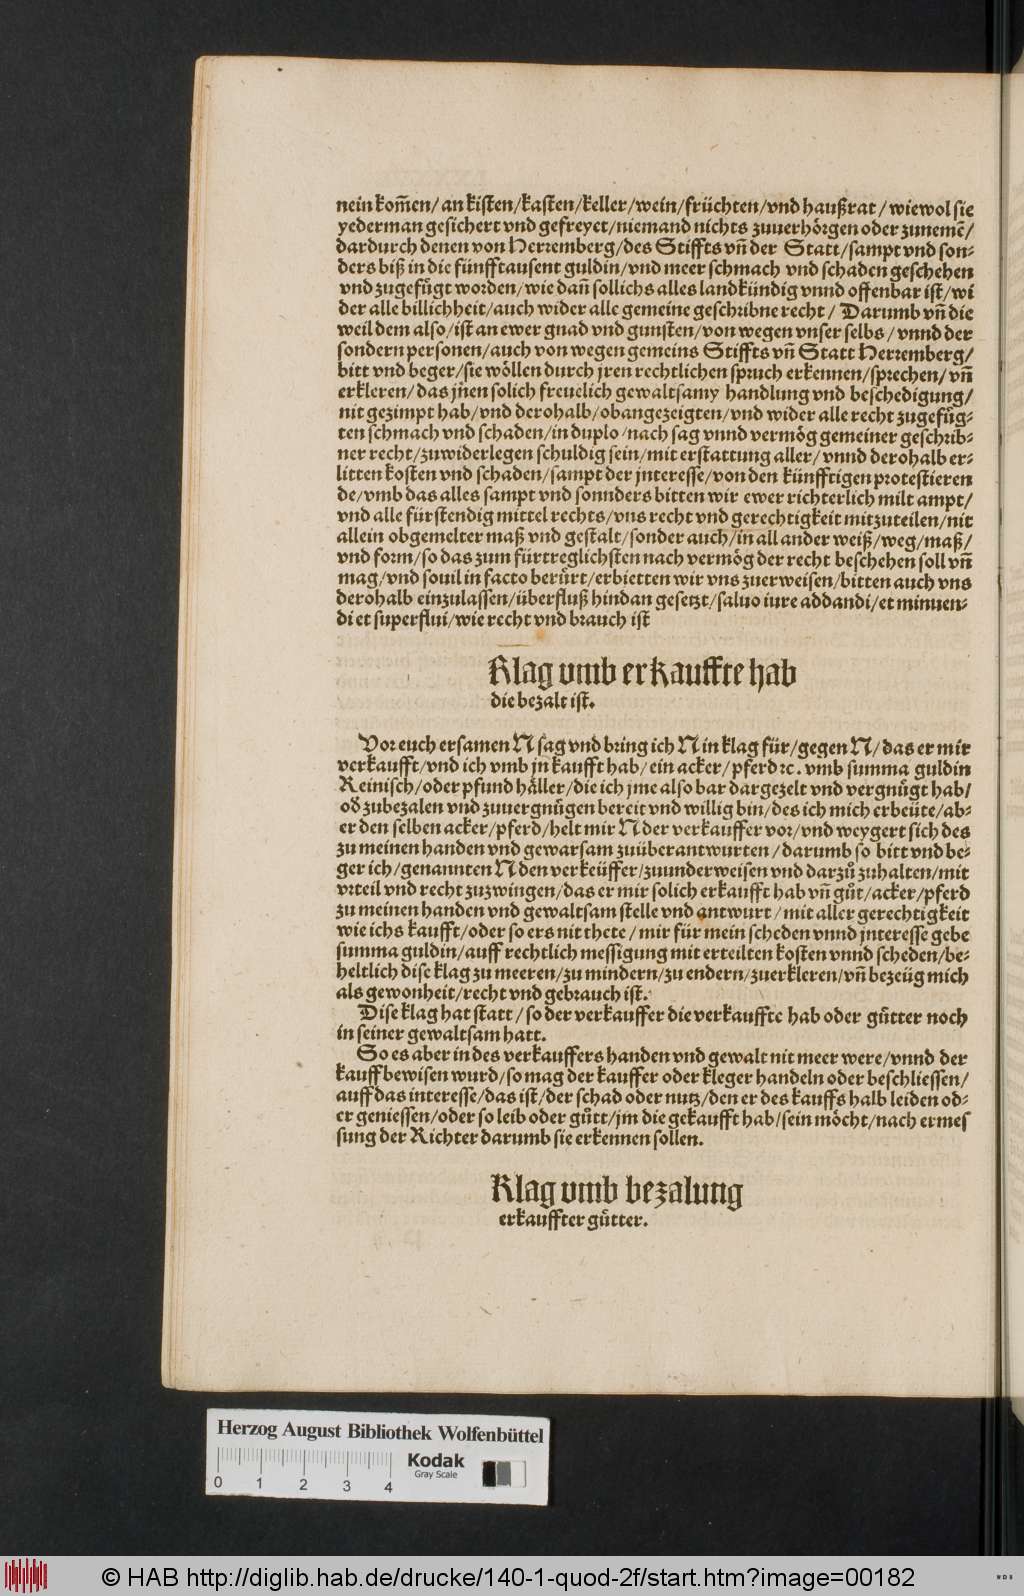 nein kom̃en/ an kisten/kasten/keller/wein/früchten/vnd haußrat/ wiewol sie
yederman gesichert vnd gefreyet/niemand nichts zuuerhörgen oder zunemẽ/
dardurch denen von Herremberg/des Stiffts vñ der Statt/sampt vnd son-
ders biß in die fünfftausent guldin/vnd meer schmach vnd schaden geschehen
vnd zugefügt worden/wie dañ sollichs alles landkündig vnnd offenbar ist/wi
der alle billichheit/auch wider alle gemeine geschribne recht/ Darumb vñ die
weil dem also/ist an ewer gnad vnd gunsten/von wegen vnser selbs/vnnd der
sondern personen/auch von wegen gemeins Stiffts vñ Statt Herremberg/
bitt vnd beger/sie wöllen durch jren rechtlichen spruch erkennen/sprechen/vñ
erkleren/das jñen solich freuelich gewaltsamy handlung vnd beschedigung/
nit gezimpt hab/vnd derohalb/obangezeigten/vnd wider alle recht zugefüg-
ten schmach vnd schaden/in duplo/nach sag vnnd vermög gemeiner geschrib-
ner recht/zuwiderlegen schuldig sein/mit erstattung aller/vnnd derohalb er-
litten kosten vnd schaden/sampt der jnteresse/von den künfftigen protestieren
de/vmb das alles sampt vnd sonnders bitten wir ewer richterlich milt ampt/
vnd alle fürstendig mittel rechts/vns recht vnd gerechtigkeit mitzuteilen/nit
allein obgemelter maß vnd gestalt/sonder auch/in all ander weiß/weg/maß/
vnd form/so das zum fürtreglichsten nach vermög der recht beschehen soll vñ
mag/vnd souil in facto berürt/erbietten wir vns zuerweisen/bitten auch vns
derohalb einzulassen/überfluß hindan gesetzt/saluo iure addandi/et minuen-
di et superflui/wie recht vnd brauch ist
Klag vmb erkauffte hab
die bezalt ist.
Vor euch ersamen N sag vnd bring ich N in klag für/gegen N/das er mir
verkaufft/vnd ich vmb jn kaufft hab/ein acker/pferd ⁊c. vmb summa guldin
Reinisch/oder pfund häller/die ich jme also bar dargezelt vnd vergnügt hab/
oð zubezalen vnd zuuergnügen bereit vnd willig bin/des ich mich erbeüte/ab-
er den selben acker/pferd/helt mir N der verkauffer vor/vnd weygert sich des
zu meinen handen vnd gewarsam zuüberantwurten/darumb so bitt vnd be-
ger ich/genannten N den verkeüffer/zuunderweisen vnd darzů zuhalten/mit
vrteil vnd recht zuzwingen/das er mir solich erkaufft hab vñ gůt/acker/pferd
zu meinen handen vnd gewaltsam stelle vnd antwurt/mit aller gerechtigkeit
wie ichs kaufft/oder so ers nit thete/mir für mein scheden vnnd jnteresse gebe
summa guldin/auff rechtlich messigung mit erteilten kosten vnnd scheden/be-
heltlich dise klag zu meeren/zu mindern/zu endern/zuerkleren/vñ bezeüg mich
als gewonheit/recht vnd gebrauch ist.
Dise klag hat statt/so der verkauffer die verkauffte hab oder gůtter noch
in seiner gewaltsam hatt.
So es aber in des verkauffers handen vnd gewalt nit meer were/vnnd der
kauff bewisen wurd/so mag der kauffer oder kleger handeln oder beschliessen/
auff das interesse/das ist/der schad oder nutz/den er des kauffs halb leiden od-
er geniessen/oder so leib oder gůtt/jm die gekaufft hab/sein möcht/nach ermes
sung der Richter darumb sie erkennen sollen.
Klag vmb bezalung
erkauffter gůtter.
Herzog August Bibliothek Wolfenbüttel
Kodak
Gray Scale
0 1 2 3 4
© HAB http://diglib.hab.de/drucke/140-1-quod-2f/start.htm?image=00182